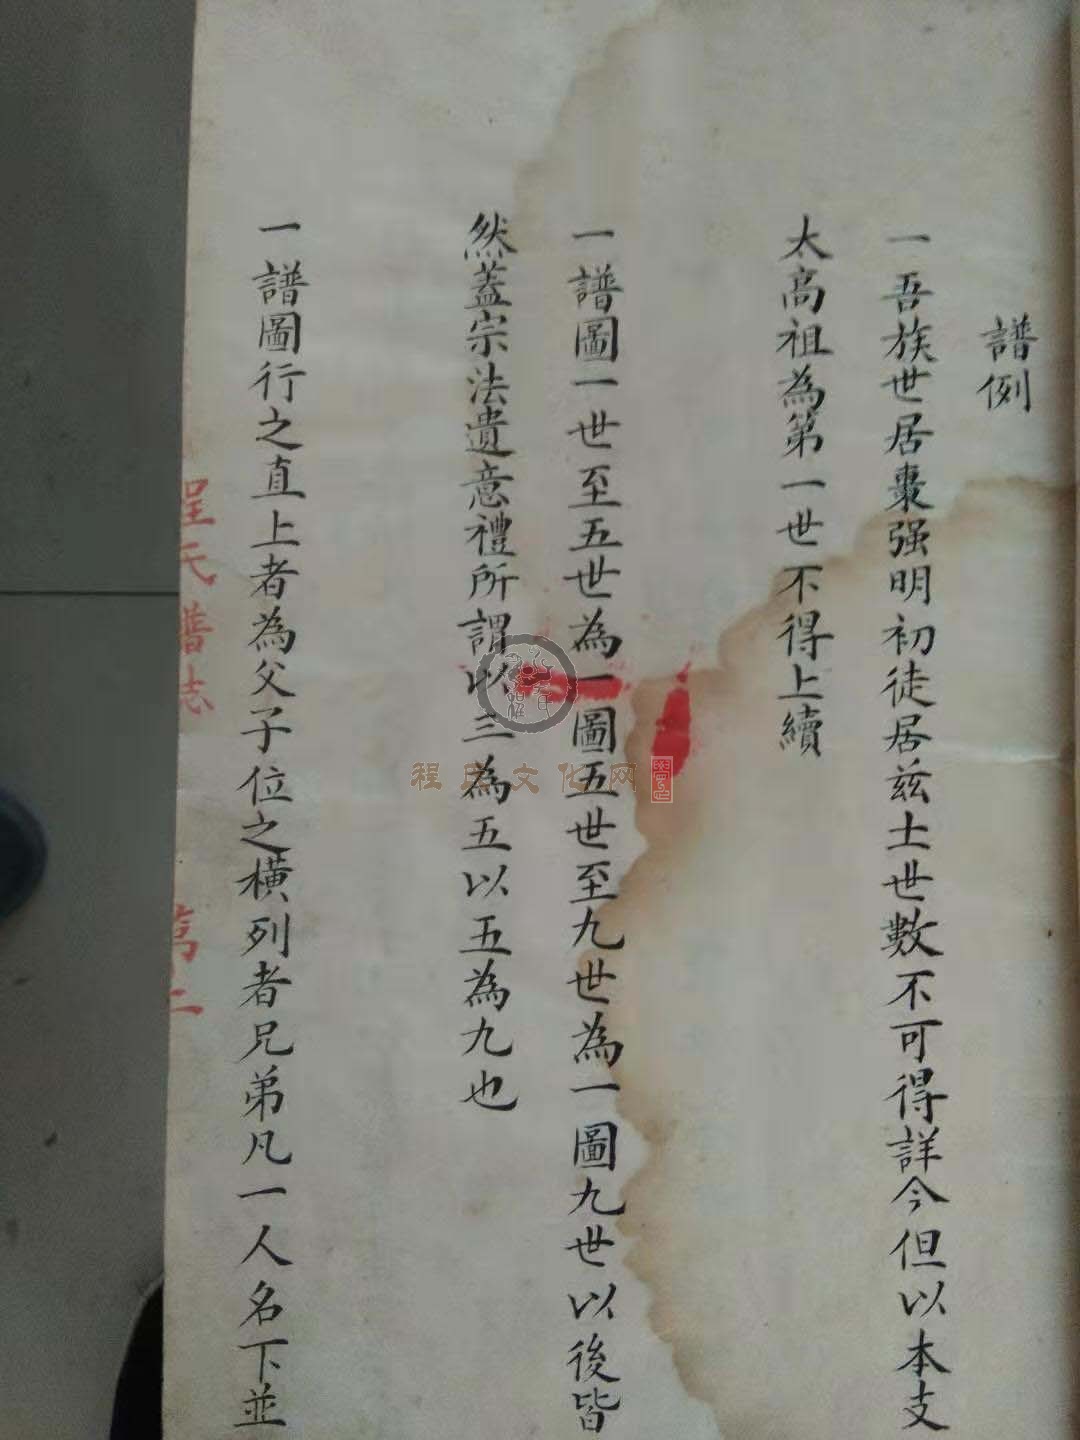 譜例
一吾族世居棗强明初徒居兹土世數不可得詳今但以本支
太高祖為第一世不得上續
一譜圖一世至五世為一圖五世至九世為一圖九世以後皆
然蓋宗法遺意禮所謂以三為五以五為九也
一譜圖行之直上者為父子位之橫列者兄弟凡一人名下並
程氏譜志
第二
程氏文化网